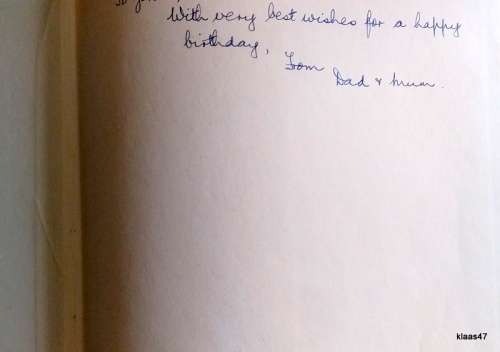 With very best wishes for a happy
birthday,
From
Dad & Mum.
klaas47